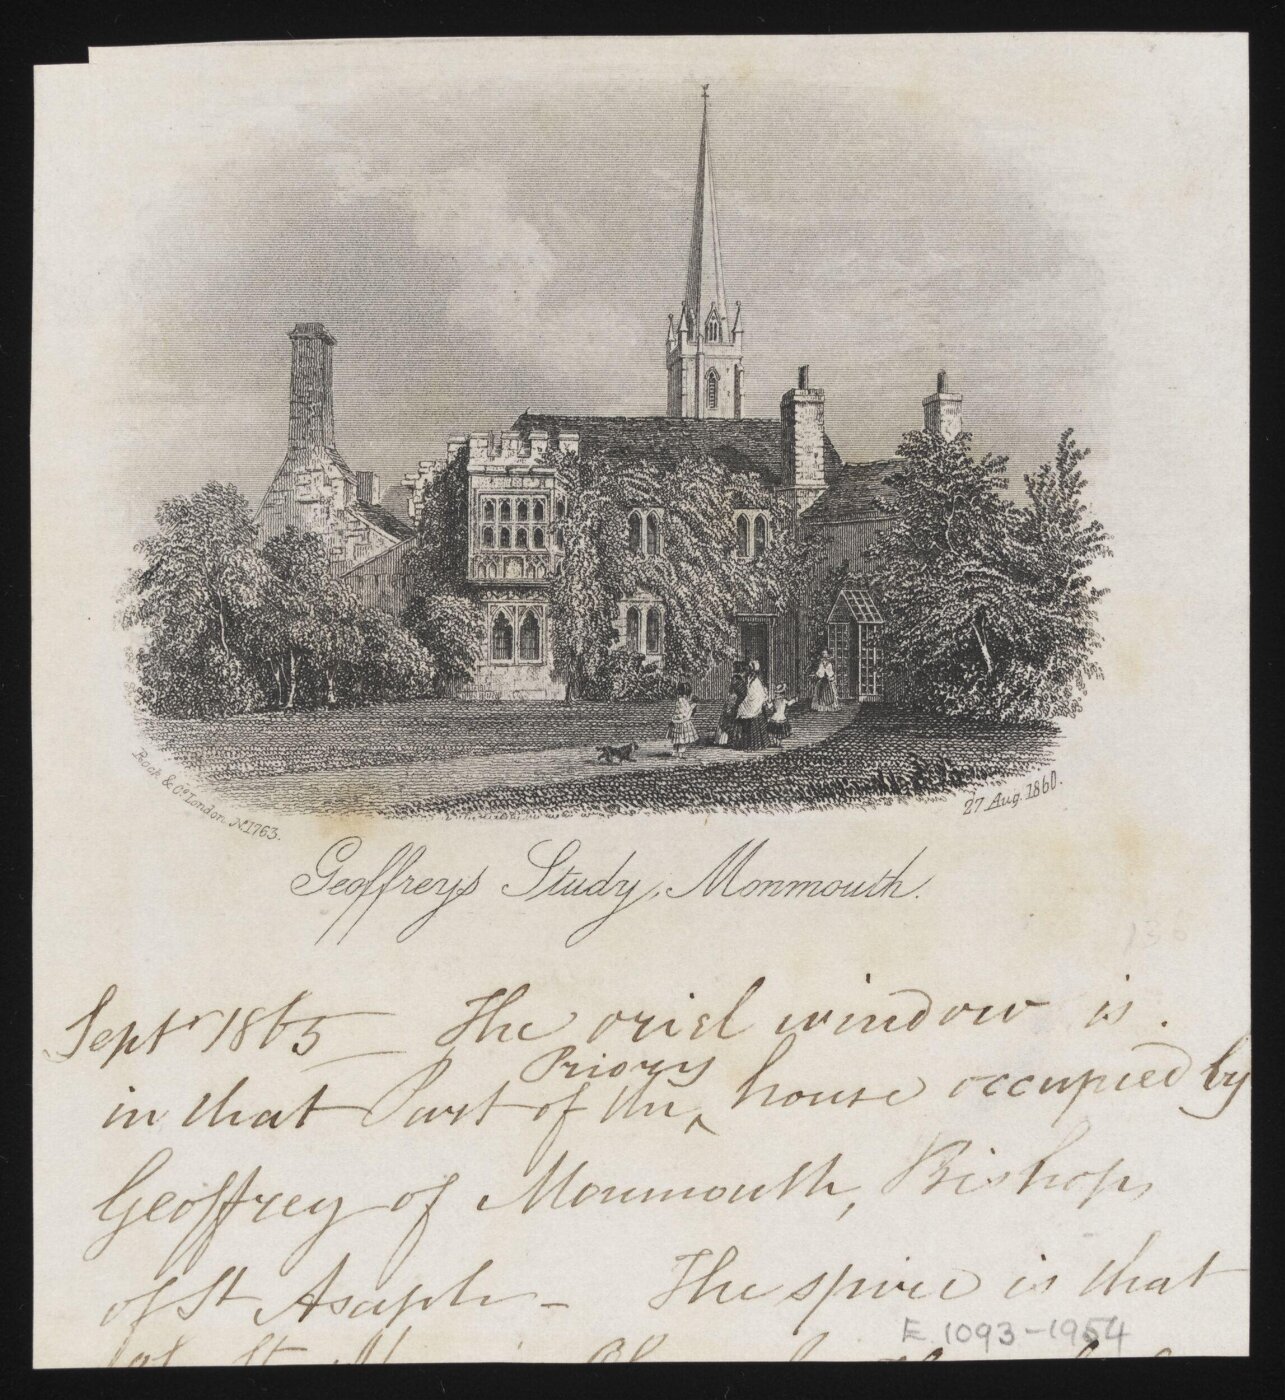 Rock & Co. London. No. 1763.
27 Aug. 1860.
Geoffrey's Study, Monmouth.
Septr 1865 – The oriel window is
in that Part of the ^ Priory house occupied by
Geoffrey of Monmouth, Bishop
of St Asaph – The spire is that
of St
E.1093-1954